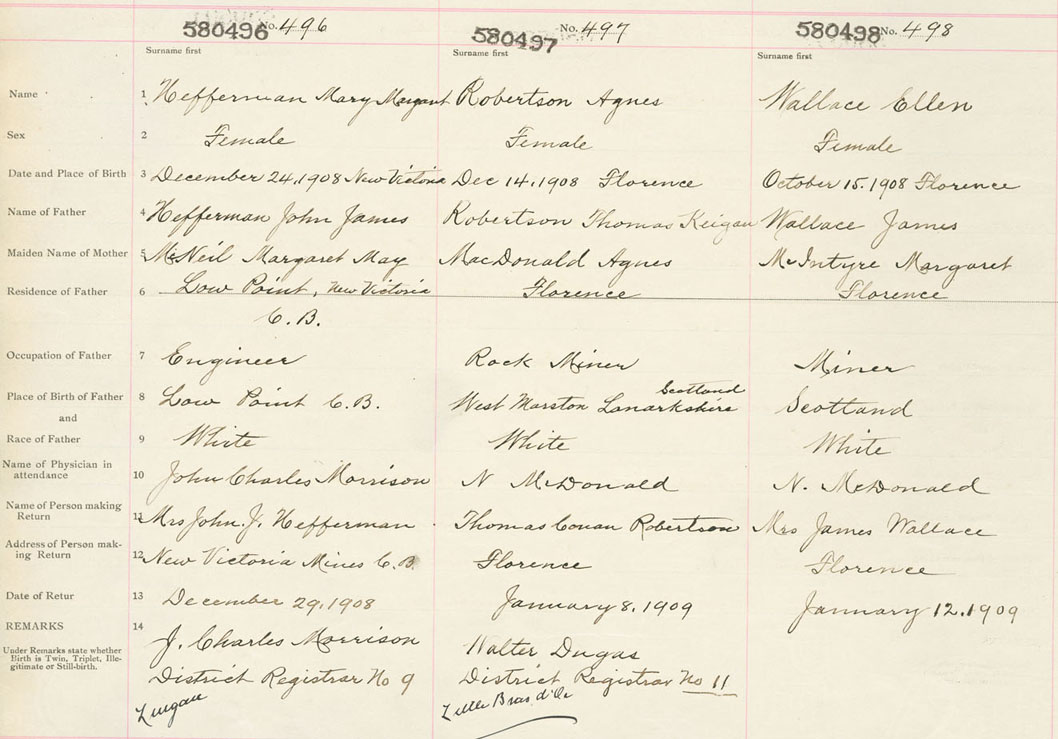 580496 No. 496 580497 No. 497 580498 No. 498
Surname first Surname first Surname first
Name 1 Hefferman Mary Margaret Robertson Agnes Wallace Ellen
Sex 2 Female Female Female
Date and Place of Birth 3 December 24, 1908 New Victoria Dec 14, 1908 Florence October 15. 1908 Florence
Name of Father 4 Hefferman John James Robertson Thomas Wallace James
Maiden Name of Mother 5 McNeil Margaret May MacDonald Agnes McIntyre Margaret
Residence of Father 6 Low Point, New Victoria Florence Florence
C.B.
Occupation of Father 7 Engineer Rock Miner Miner
Scotland
Place of Birth of Father 8 Low Point C.B. West Marston Lanarkshire Scotland
and
Race of Father 9 White White White
Name of Physician in
attendance 10 John Charles Morrison N McDonald N. McDonald
Name of Person making
Return 11 Mrs John. J. Hefferman Thomas Conan Robertson Mrs James Wallace
Address of Person mak-
ing Return 12 New Victoria Mines C.B. Florence Florence
Date of Retur 13 December 29, 1908 January 8, 1909 January 12, 1909
REMARKS 14 J. Charles Morrison Walter Dugas
Under Remarks state whether
Birth is Twin, Triplet, Ille-
gitimate or Still-birth.
District Registrar No 9 District Registrar No 11
Lingan Little Bras d'Or